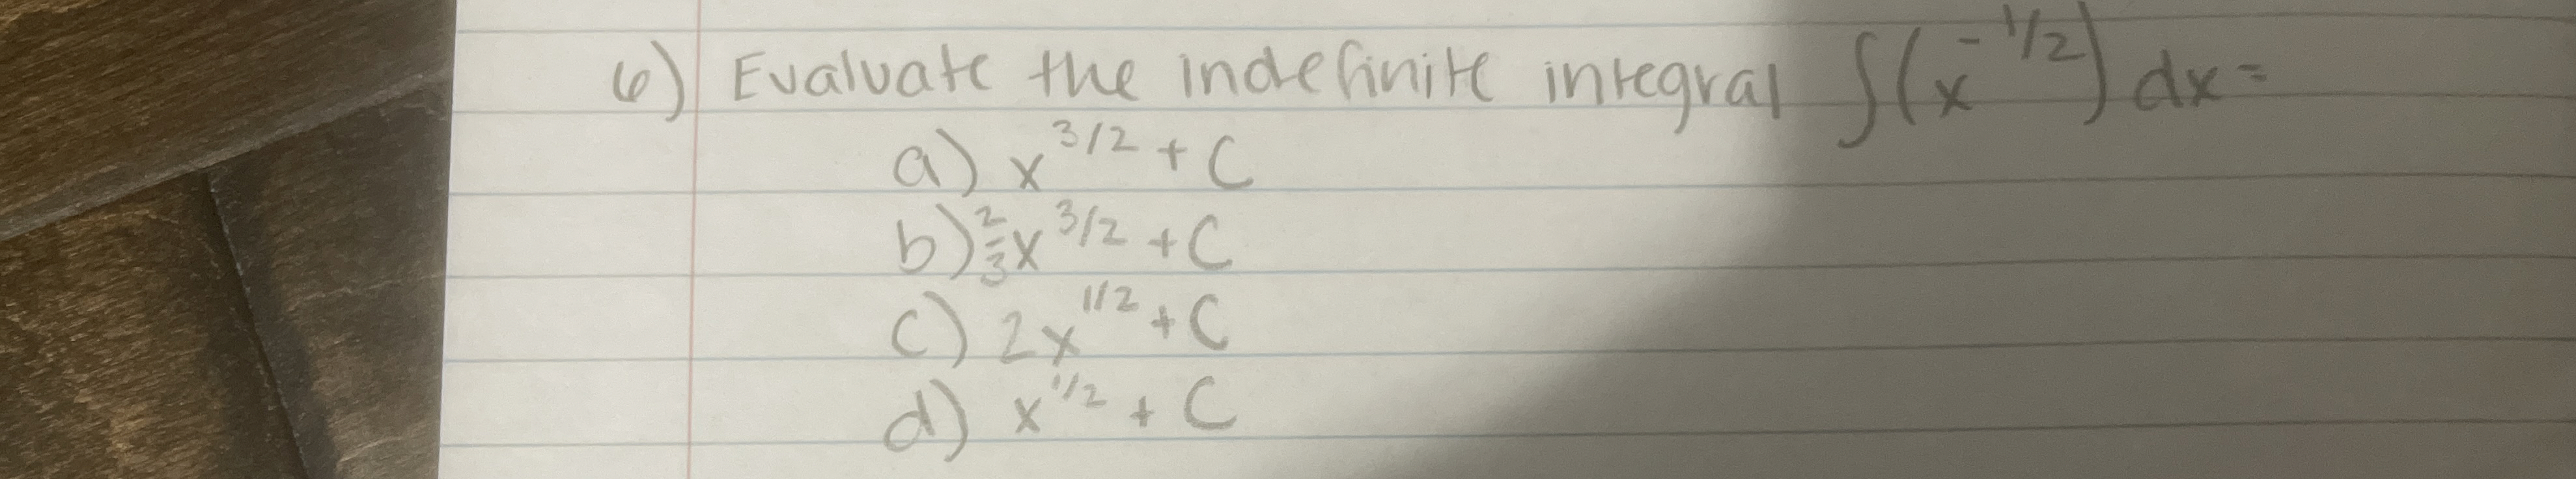 6) Evaluate the indefinite integral ∫(x^-1/2) dx=
a) x^3/2 + C
b) 2/3 x^3/2 + C
c) 2x^1/2 + C
d) x^1/2 + C